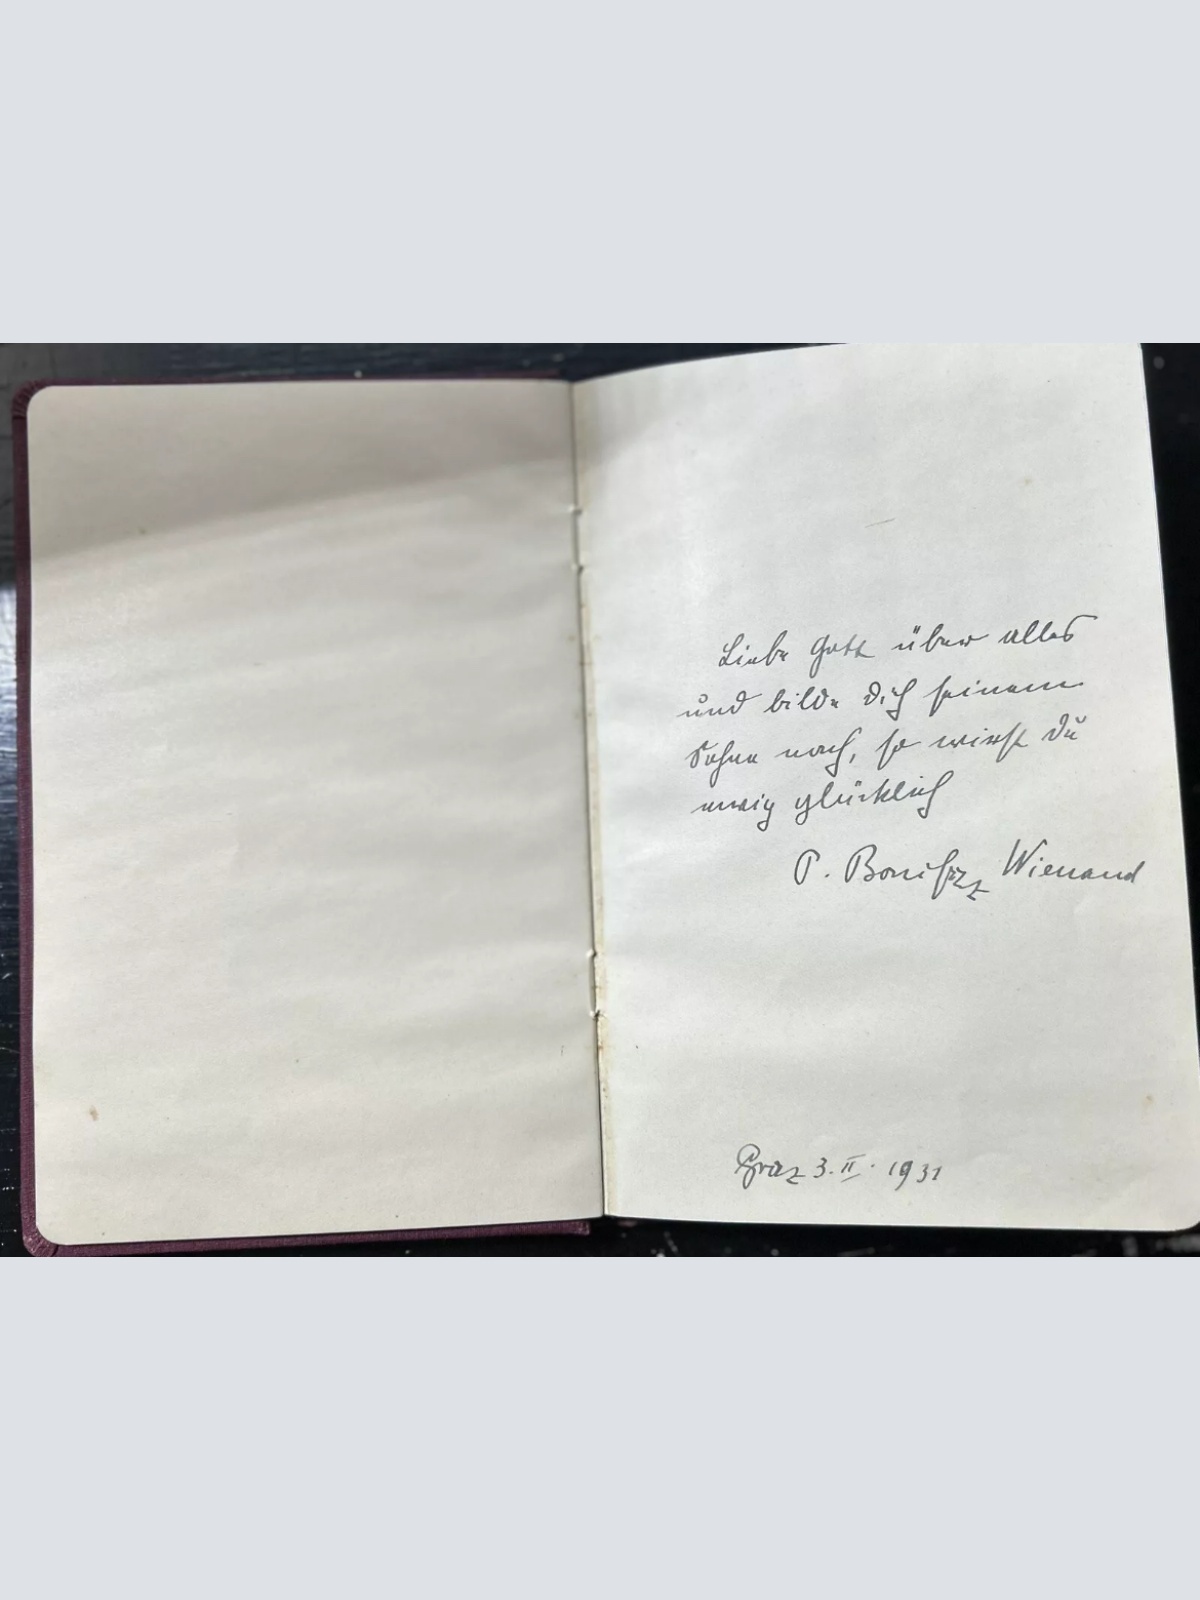 Liebe Gott über alles
und bilde dich seinem
Sohne nach, so wirst du
ewig glücklich
P. Bonifaz Wienand
Graz 3. II. 1931